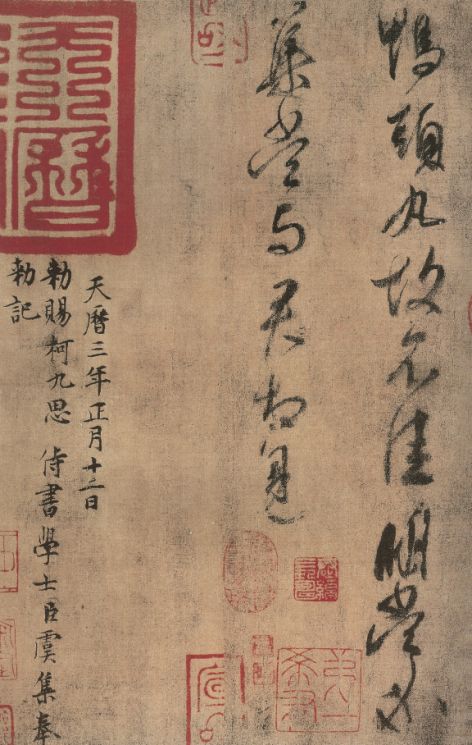 鴨頭丸故不佳明當必
集當与君相見
天曆
天曆三年正月十二日
勅賜柯九思 侍書學士臣虞集奉
勅記